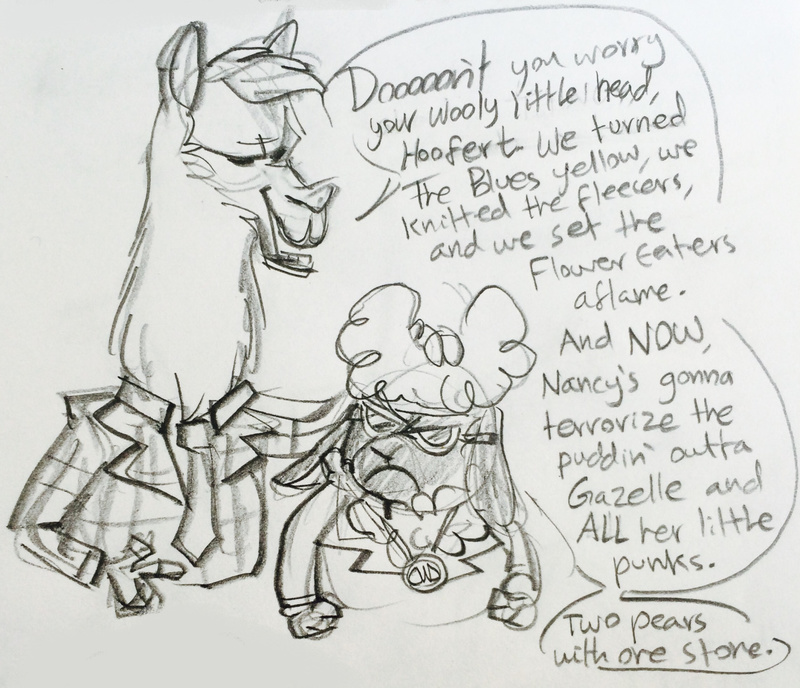 Dooooon't you worry
your wooly little head,
Hoofert. We turned
the Blues yellow, we
knitted the fleecers,
and we set the
Flower Eaters
aflame.
And NOW,
Nancy's gonna
terrorize the
puddin' outta
Gazelle and
ALL her little
punks.
Two pears
with one stone.